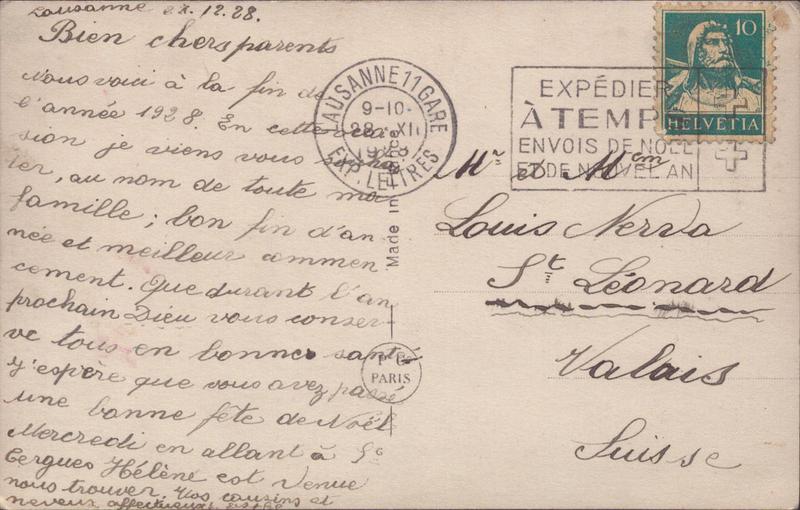 Lausanne 27.12.28.
Bien chers parents
Nous voici à la fin de
l'année 1928. En cette occa-
sion je viens vous souhai-
ter, au nom de toute ma
famille; bon fin d'an-
née et meilleur commen
cement. Que durant l'an
prochain Dieu vous conser-
ve tous en bonnes santé
J'espère que vous avez passé
une bonne fête de Noël
Mercredi en allant à St
Cergues Hélène est venue
nous trouver. Vos cousins et
neveux affectueux
LAUSANNE 11 GARE
9-10
28.XII
1928
EXP. LETTRES
EXPÉDIER
À TEMP
ENVOIS DE NOËL
ET DE NOUVEL AN
10
HELVETIA
Made in France
P C
PARIS
Mr et Mme
Louis Nerva
St Léonard
Valais
Suisse